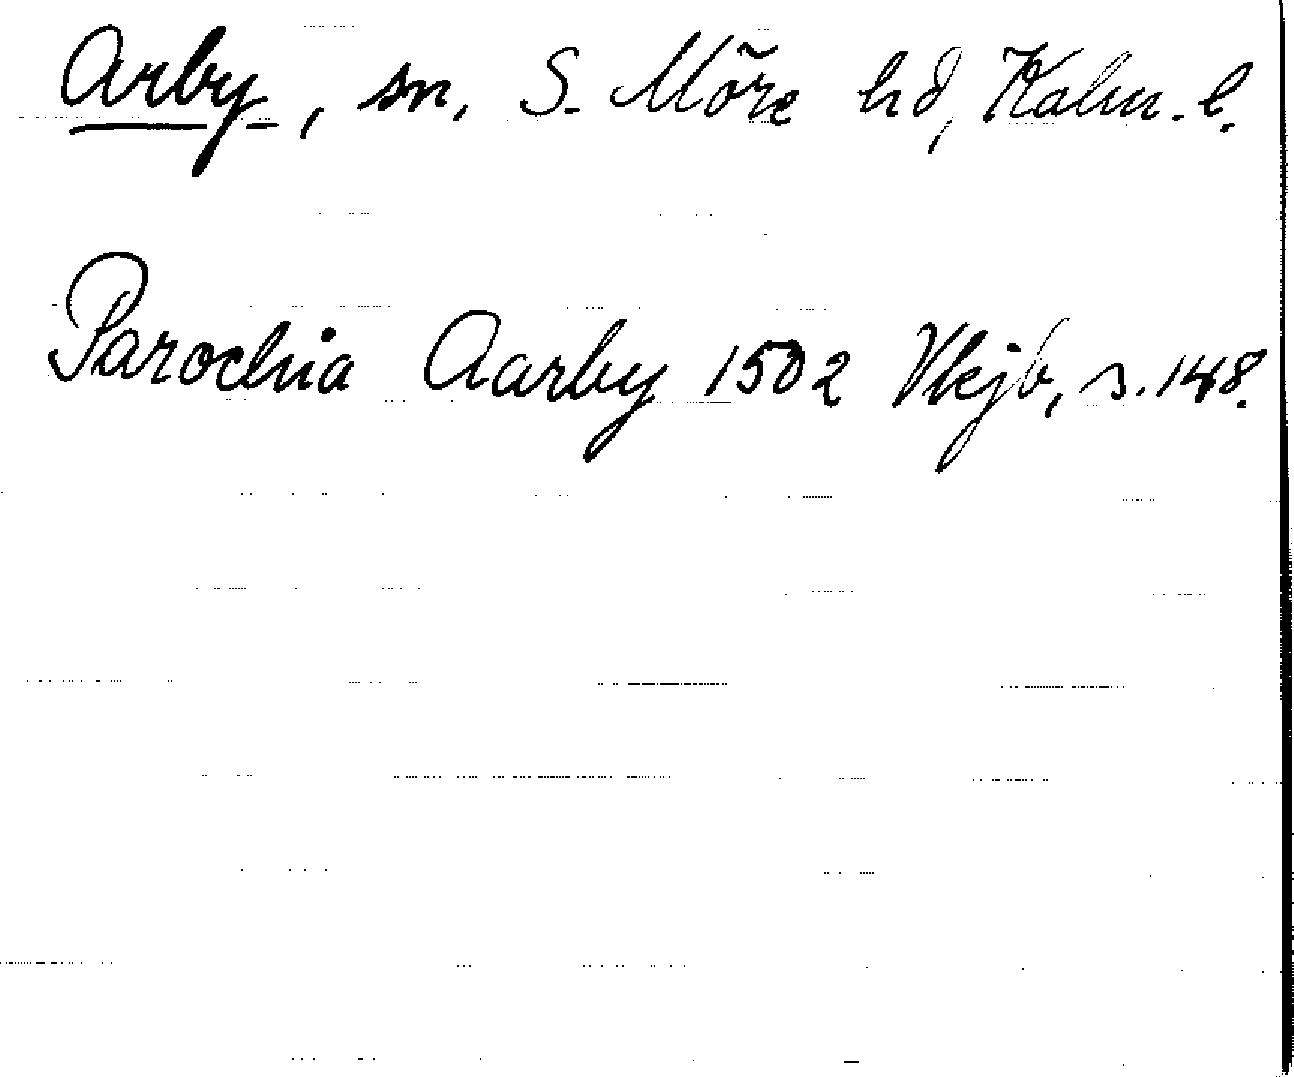 Arby, sn, S. Möre hd, Kalm. l.
Parochia Aarby 1502 Vkjb, s. 148.